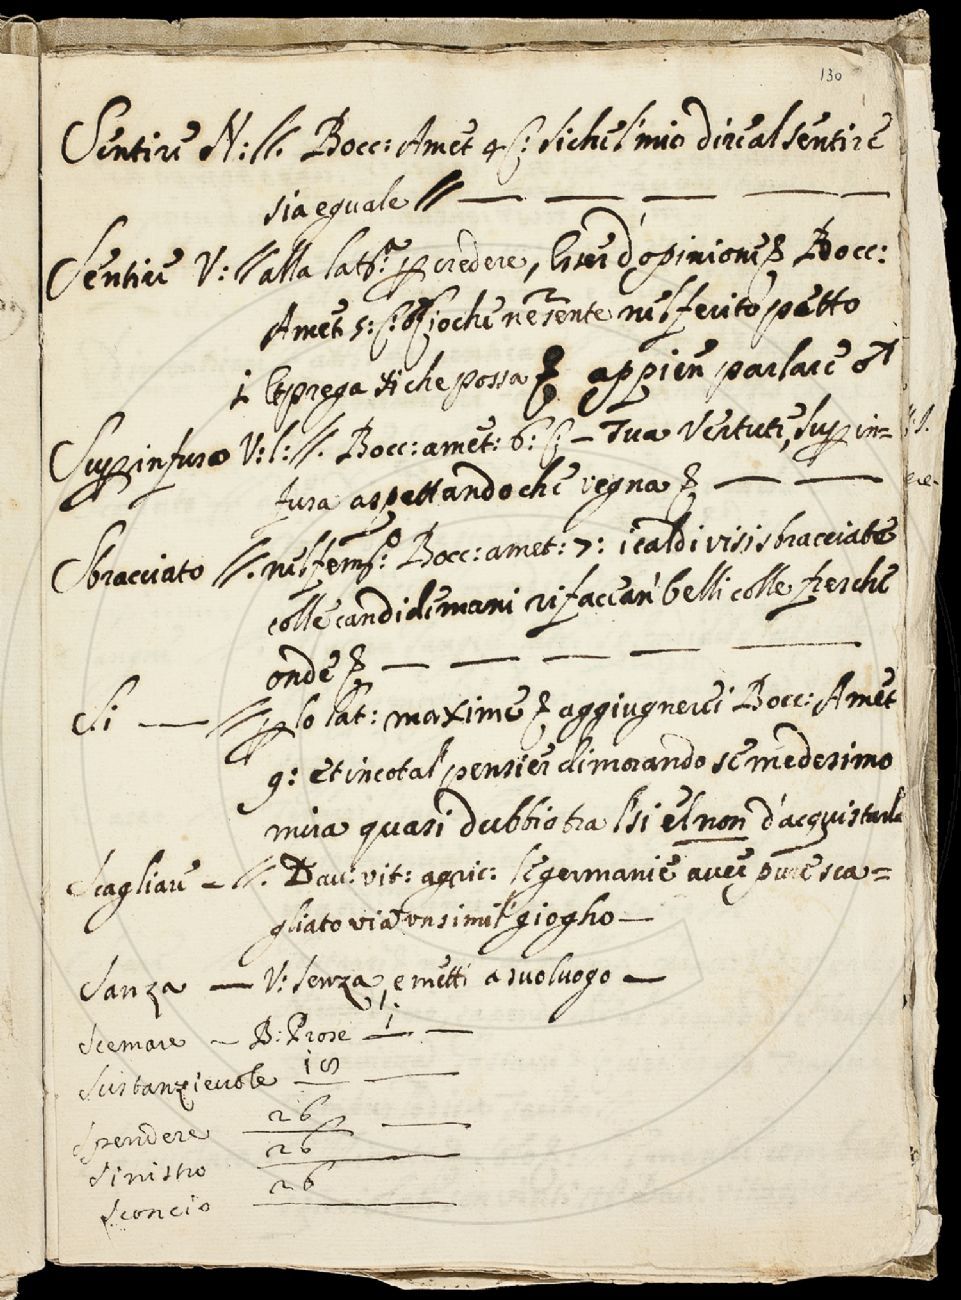 130
Sentire N: //. Bocc: Amet 4 sichel mio dire al sentire
sia eguale //
Sentire V: // alla lat. credere, Esser d'opinione Bocc:
Amet 5: ioche ne sente nel ferito petto
i Et prega che possa appien parlare
Sup infuso V: l: //. Bocc: amet: 6: – Tua Vertute, sup in=
fusa aspettando che vegna
Sbracciato //. nel fem. Bocc: amet: 7: i caldi visi sbracciate
colle candide mani rifaccan belli colle fresche
onde
Si — // p lo lat: maxime aggiugnerci Bocc: Amet
9: et in cotal pensier dimorando se medesimo
mira quasi dubbio tra l si el non d'acquistarla
Scagliare – //. Dav: vit: agric: le germanie avere pure sca=
gliato via un simil giogho —
Sanza — V: senza, e metti a suo luogo —
Scemare — B: Prose 1
Sustanzievole 18
Spendere 26
Sinistro 26
Sconcio 26